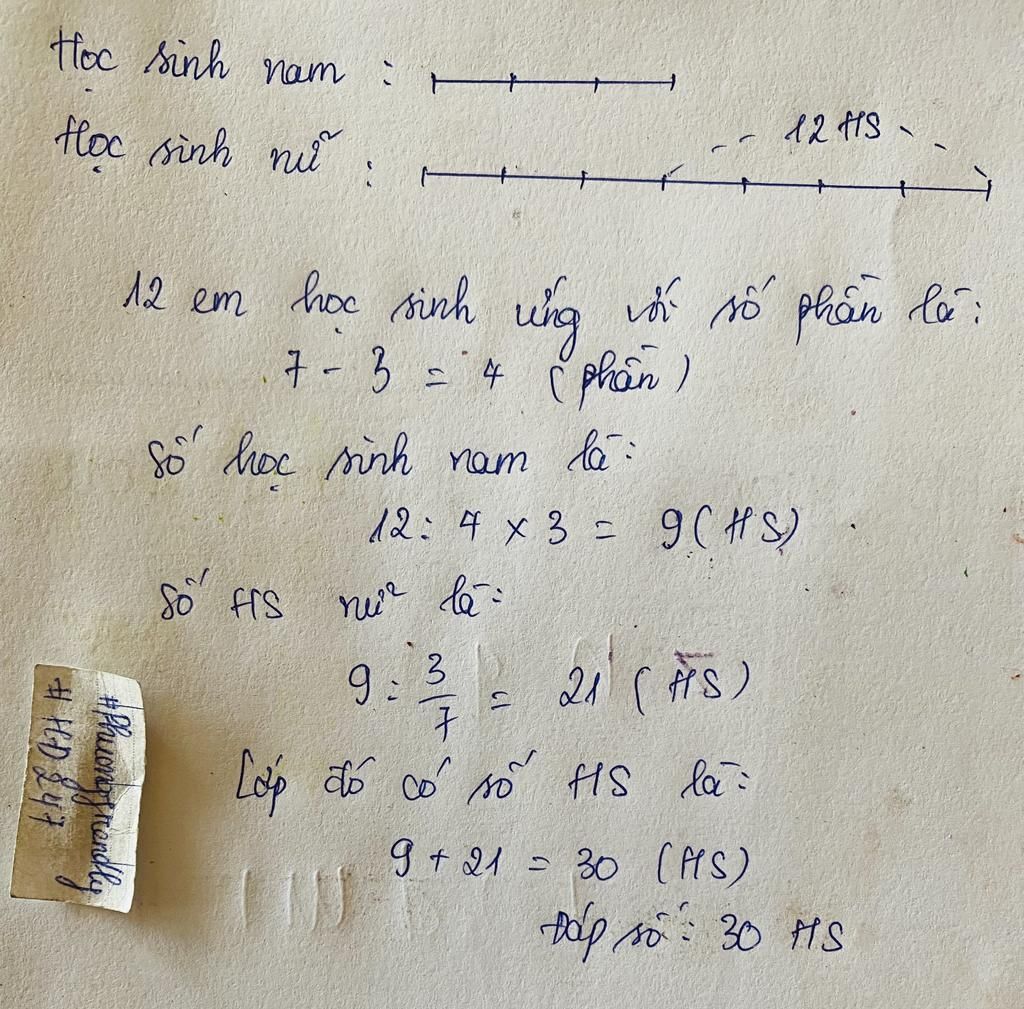 Học sinh nam :
12 HS
Học sinh nữ :
12 em học sinh ứng với số phần là:
7 - 3 = 4 (phần)
Số học sinh nam là:
12 : 4 x 3 = 9 (HS)
Số HS nữ là:
9 : 3/7 = 21 (HS)
Lớp đó có số HS là:
9 + 21 = 30 (HS)
Đáp số: 30 HS
#Phuongfriendly
#HD247